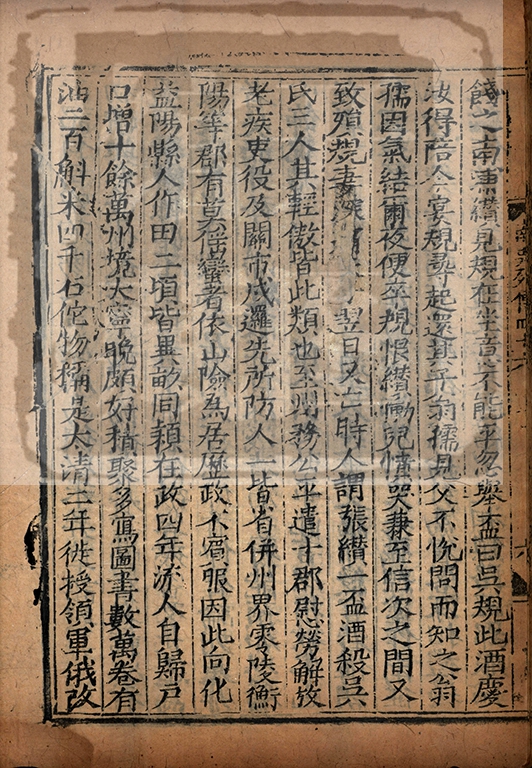 餞之南浦纘見規在坐意不能平忽舉盃曰吳規此酒慶
汝得陪今宴規尋起還其子翁孺見父不悅問而知之翁
孺因氣結爾夜便卒規恨纘慟兒憤哭兼至信次之間又
致殞規妻深翌日又亡時人謂張纘一盃酒殺吳
氏三人其輕傲皆此類也至州務公平遣十郡慰勞解放
老疾吏役及關市戍邏先所防人一皆省併州界零陵衡
陽等郡有莫傜蠻者依山險為居歷政不賓服因此向化
益陽縣人作田二頃皆異畝同穎在政四年流人自歸戶
口增十餘萬州境大寧晚頗好積聚多寫圖書數萬卷有
油二百斛米四千石佗物稱是太清二年徙授領軍俄改